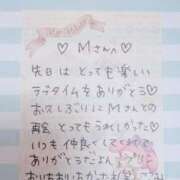 ♡ Mさんへ ♡
先日は とっても楽しい
ラブタイムをありがとう♡
お久しぶりに Mさんとの
再会 とってもうれしかった♡
いつも仲良くしてくれて
ありがとうだよん